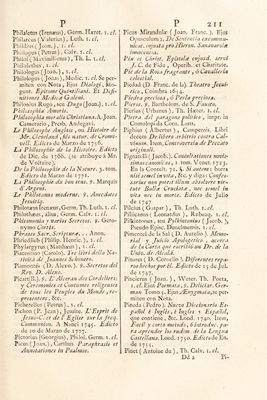 P P 211
Philaletes (Irenæus), Germ. Haret. 1. cl.
Philarcus (Valerius), Luth. 1. cl.
Philidius (Joan.), 1. cl.
Philippus (Petrus), Calv. 1. cl.
Philos (Maximilianus), Th. L. 1. cl.
Philoletus, 1. cl.
Philologus (Joan.), 1. cl.
Philologus (Joan.), Medic. 1. cl. Se permiten
con Nota, Ejus Dialogi, Margarit.
Epitome Quæstiónum. Et Definitiones
Medicæ Galeni.
Philonius Rugo, seu Dugo (Joan.), 1. cl.
Philosophia Amoris.
Philosophia moralis Christiana. A Joan.
Camerario, Presb. Anlegani.
Le Philosophe Anglois, ou Histoire de
Mr. Cleveland, fils naturel, de Cromwell.
Edicto de Marzo de 1756.
La Philosophie de la Histoire. Edicto
de Dic. de 1766. (se atribuye á Mr.
de Voltaire.)
De la Philosophie de la Nature, 3. tom.
Edicto de Marzo de 1771.
La Philosophie du bon sens. V. Marquis
d'Argens.
Le Philosophe moderne. V. Anecdote
Jesuitique.
Philotam Scetzus, Germ. Th. Luth. 1. cl.
Philothæus, alius, Germ. Calv. 1. cl.
Philtromonia y varias Secretos. V. Geronymo
Cortés.
Phrases Sacr. Scripturæ. . . Anon.
Phrisdlisch (Philip. Henric.), 1. cl.
Phrygyrgeus (Matthæus), 1. cl.
Piacentino (Carolo), Ere libro della Nobilità
di Joannes Sommers.
Piamontés (D. Alexo). V. Secretos del
Rev. D. Alexo.
Picar (Ilf.), Y Mercera des Coridors:
y Ceremonies et Coutumes religieuses
de tous les Peuples du Monde, representees,
&c.
Picherellus (Petrus), 1. cl.
Pichon (P. Jean), Jesuite. L'Esprit de
Jesus-C. et de l'Eglise sur la freq.
Communion. A Nanci 1745. Edicto
de 20 de Marzo de 1777.
Pictorius (Georgius), Philos. Germ. 1. cl.
Picus (Joan.), Carthus. Paraphrasis et
Annotationes in Psalmos.
Picus Mirandula (Joan. Franc.), Ejus
Opusculum, De Sententia excommunicat.
injusta pro Hieron. Savanarolæ
innocentia.
Pia et Christ. Epistola cujusd. servi
J. C. de Fide, Operib. et Charitate.
Pié de la Rosa fragante, ó Caualleria
celestial.
Piedad (D. Franc. de la). Theatro Jesuitico,
Coimbra 1654.
Piedra preciosa, ó Perla preciosa.
Pierus, V. Bartholom. de S. Fausto.
Pierius (Urbanus), Th. Haret. 1. cl.
Pierra del paragone politico, impr. in
Cosmopoli da Conn. Luns.
Pighius (Albertus), Campensis. Libri
decem De libero arbitrio contra Calvinum.
Item, Controversia de Peccato
originali.
Pignatelli (Jacob.) Consultationes novissimæ
canonicæ, 2. tom. Venet. 1723.
En la Consult. 72, §. Si autem: borra
nisi semel intus, &c. y diga: Confessarius
non potest illam absolvere durante
illicita condicta, nec semel in
vita neque in morte. Edicto de Julio
de 1747
Pilcerii (Gaspar), Th. Luth. 1. cl.
Pillicanus (Leonardus), Roburg. 1. cl.
Pilkentonus, seu Pilkintonius (Jacob.),
Pseudo Episc. Dunelmensis. 1. cl.
Pimentel de la Sal (D. Aurelio). Memorial
y Juicio Apologetico, acerca
de la Carta que escribió un Dr. de la
Univ. de Alcalá.
Pinaut (D. Corvelo), Diferentes reparos
escritos por el. Edicto de 13. de Jul.
de 1745.
Pincierus (Joan.), Weter. Th. Poeta,
1. cl. Ejus Poemata, 5. Deliciæ. German.
Tomo 5. Ejus Ænigmata, se permiten
con nota.
Pineda (Pedro). Nuevo Diccionario Español
é Inglés, é Inglés y Español,
que contiene, &c. Lond. 1740. Item,
Facil y corto metodo, ó introduc. para
aprender los rudim. de la Lengua
Castellana. Lond. 1750. Edicto de Enero
de 1755.
Pinet (Antoine du), Th. Calv. 1. cl.
Dd 2 Pi-